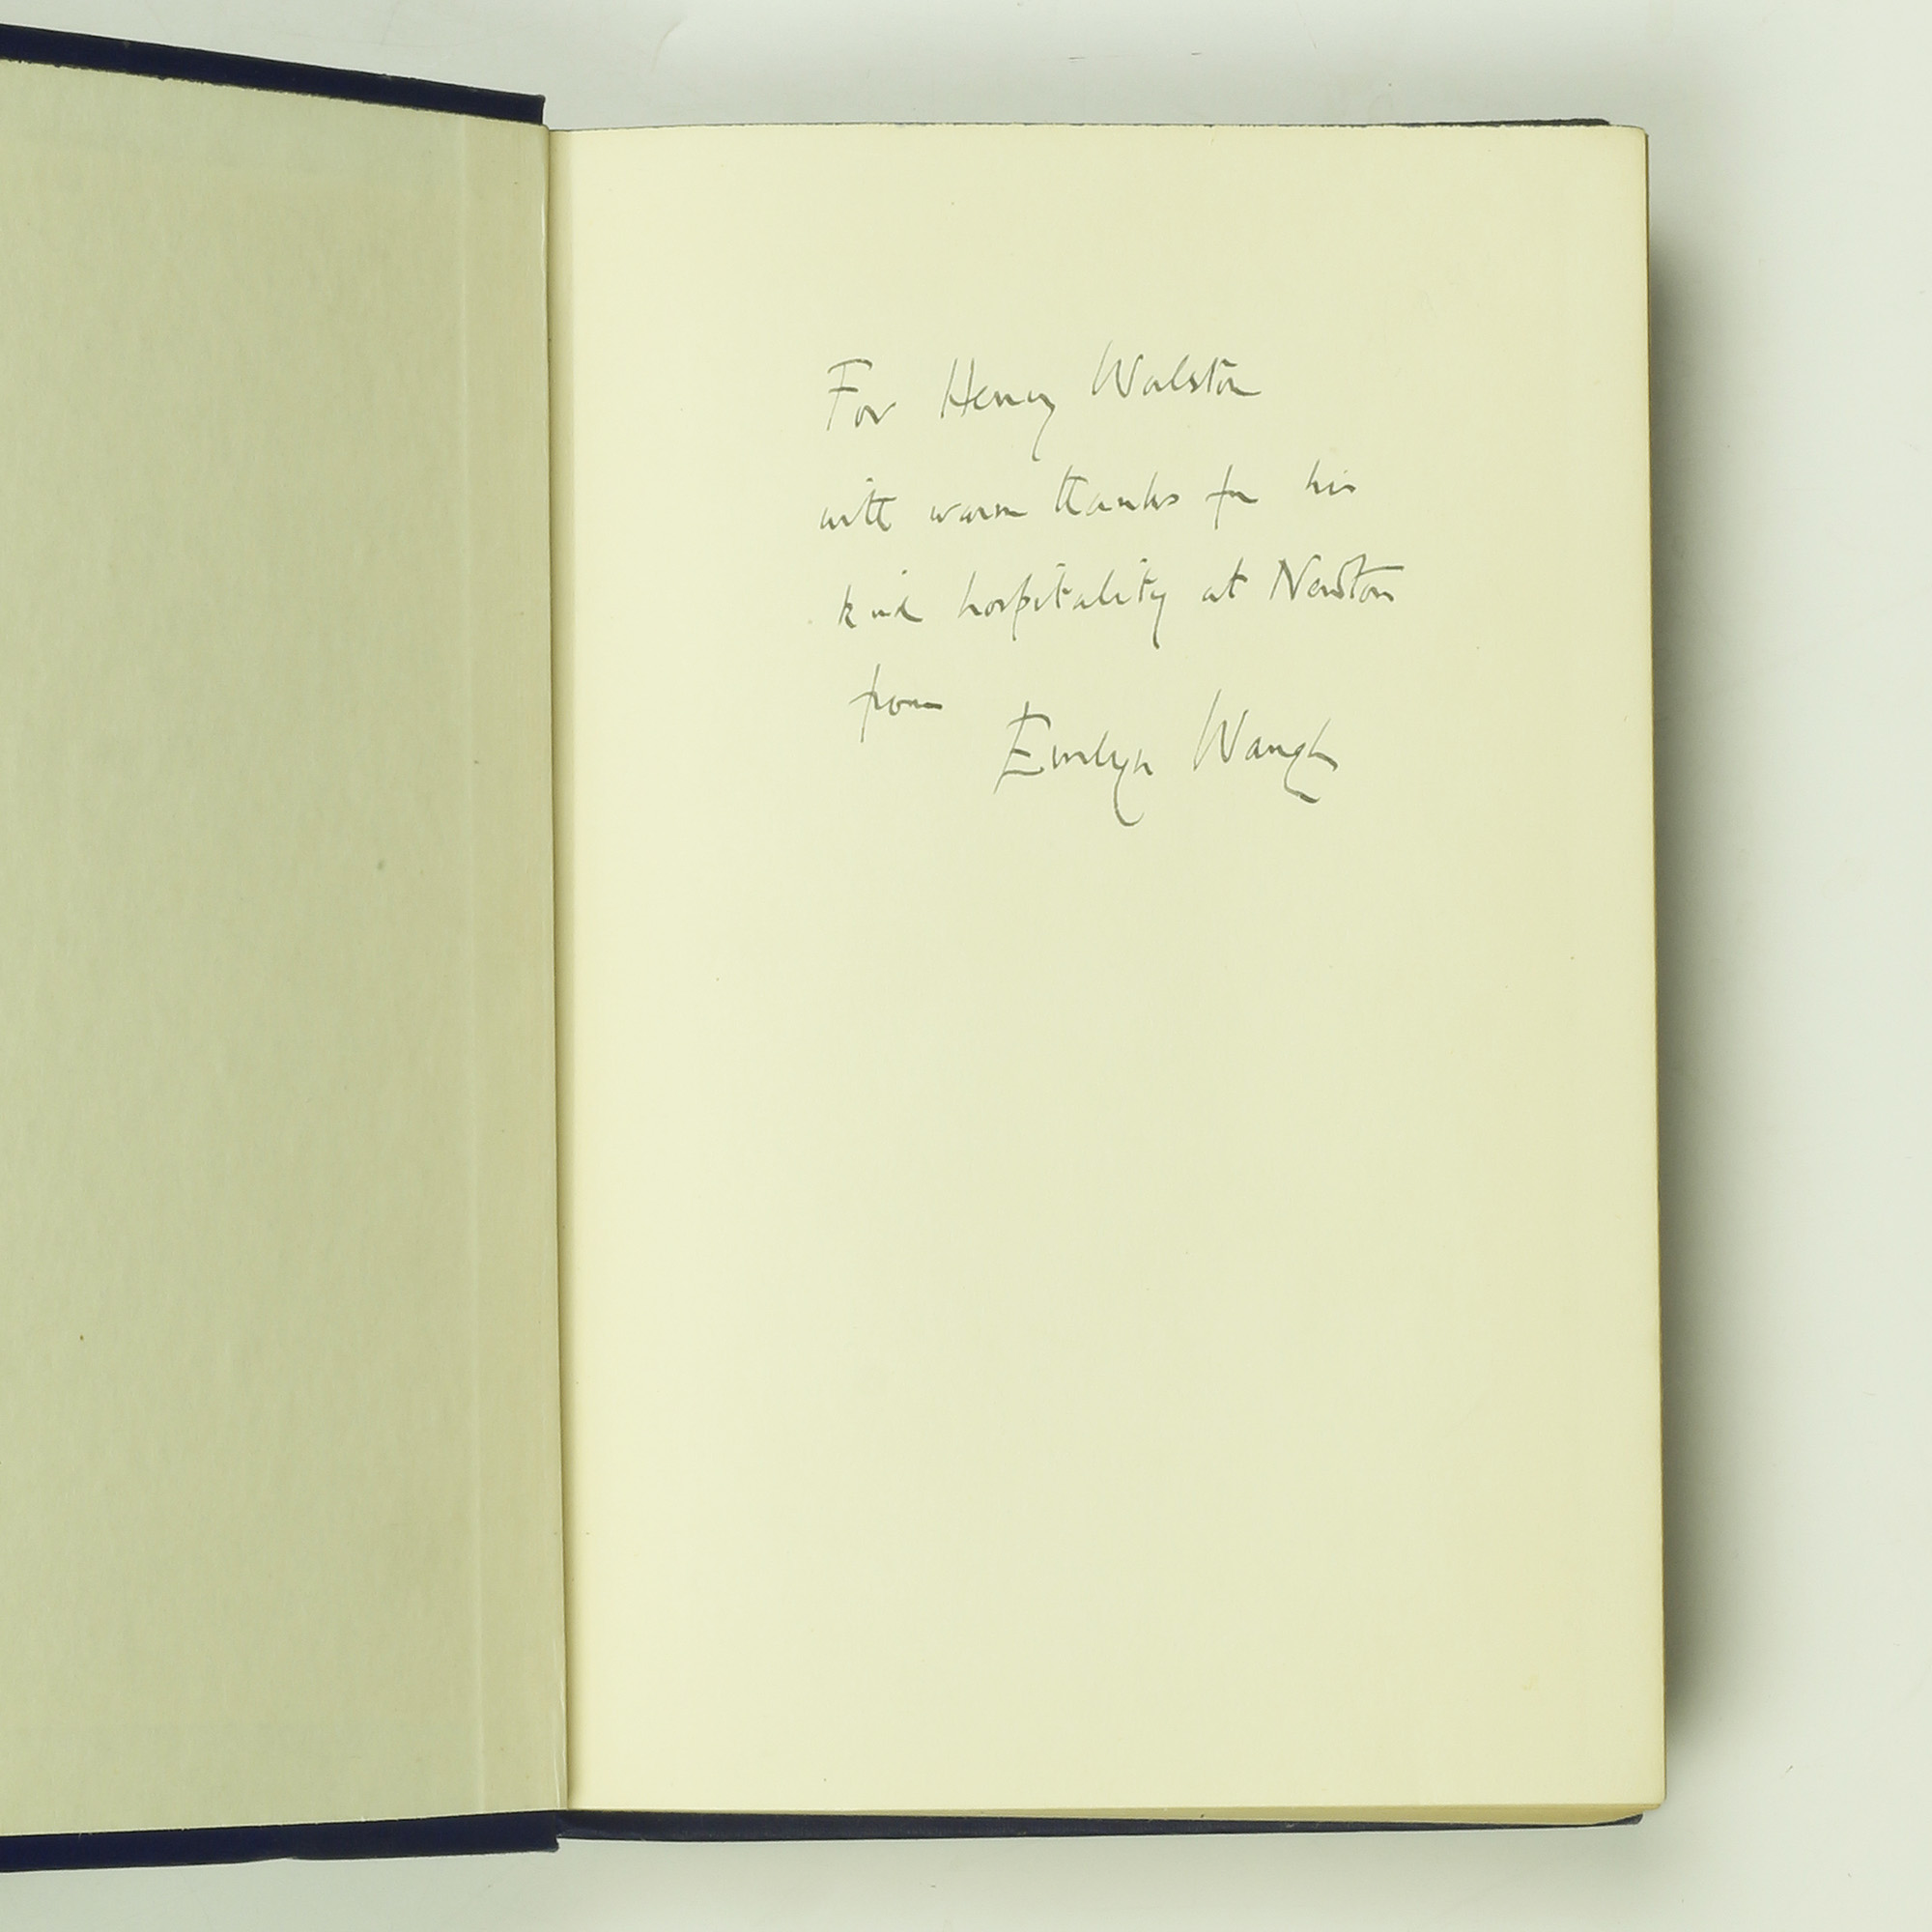 For Henry Walston
with warm thanks for his
kind hospitality at Newton
from
Evelyn Waugh